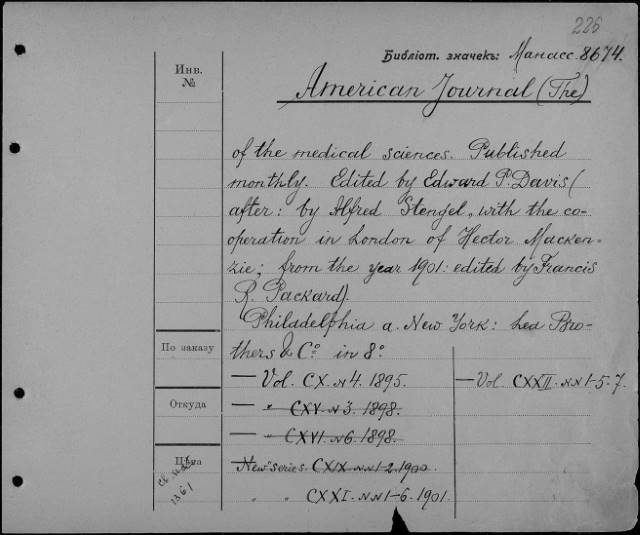 226
Библіот. значекъ: Манасс. 8674.
Инв.
№
American Journal (The)
of the medical sciences. Published
monthly. Edited by Edward P. Davis (
after: by Alfred Stengel, with the co-
operation in London of Hector Macken-
zie; from the year 1901: edited by Francis
R. Packard).
Philadelphia a. New York: Lea Bro-
thers & Cº in 8º
По заказу
— Vol. CX. N 4. 1895.
— Vol. CXXII. NN 1-5. 7.
Откуда
— „ CXV. N 3. 1898.
— „ CXVI. N 6. 1898.
Цѣна
New series CXIX NN 1-2. 1900.
„ „ CXXI. NN 1-6. 1901.
1361